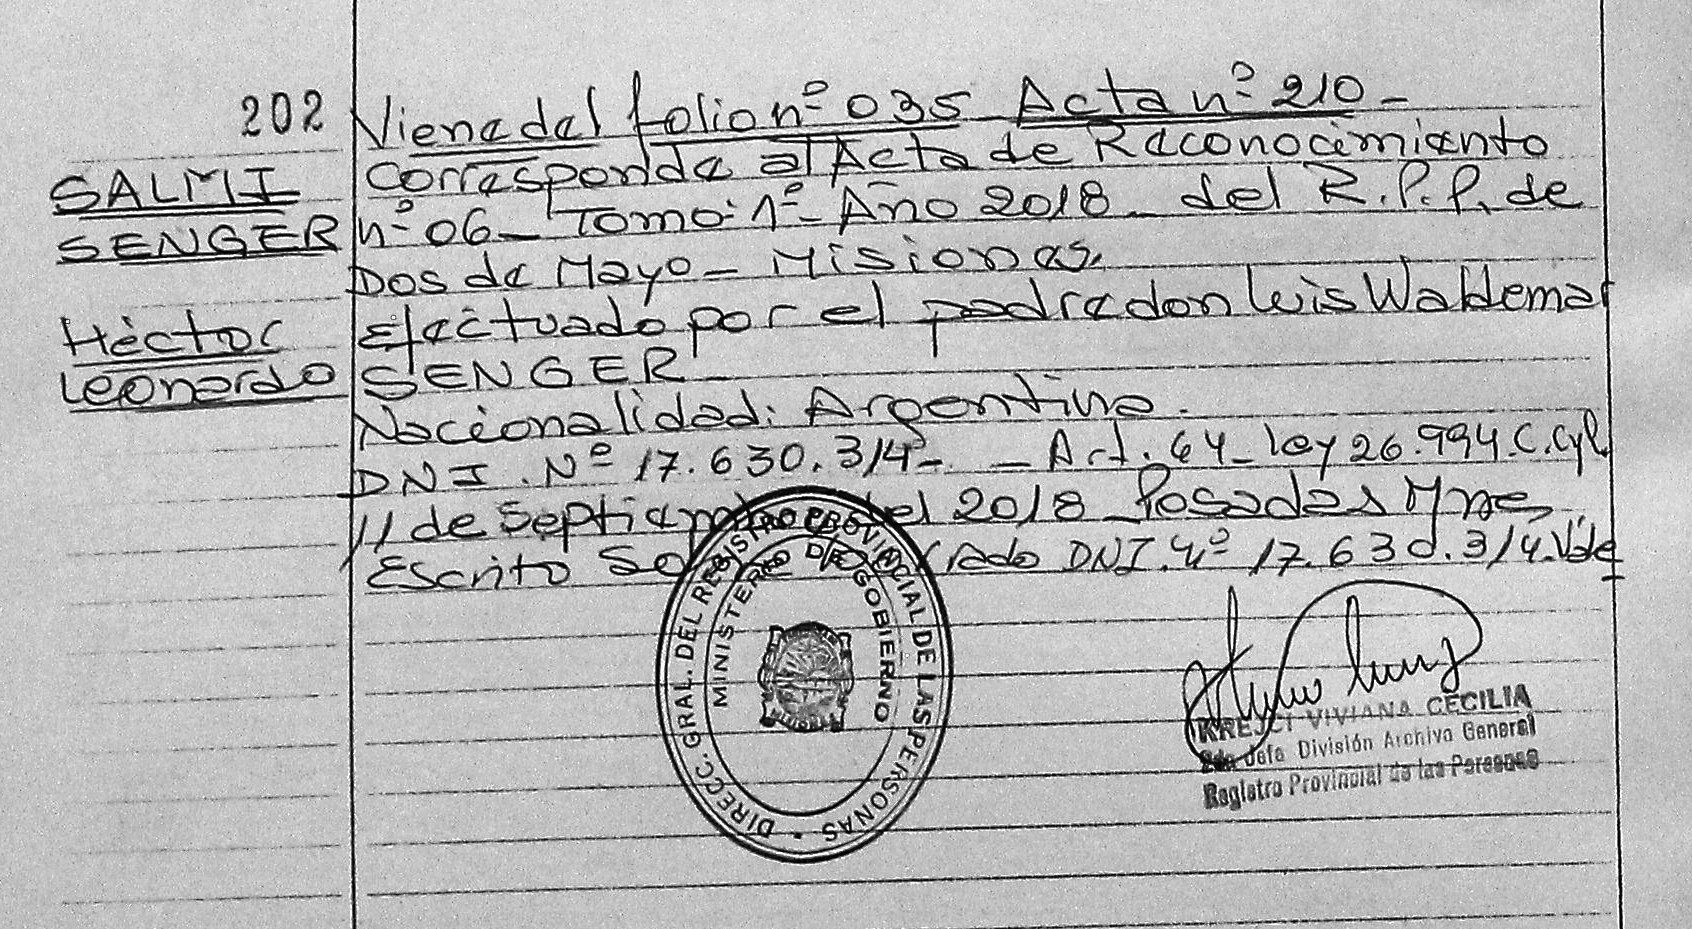 202
SALMI
SENGER
Héctor
Leonardo
Viene del folio nº 035 Acta nº 210-
Corresponde al Acta de Reconocimiento
nº 06_ Tomo: 1º_ Año 2018_ del R.P.P. de
Dos de Mayo_ Misiones.
Efectuado por el padre don Luis Waldemar
SENGER
Nacionalidad: Argentina.
DNI. Nº 17.630.314-. _ Art. 64_ ley 26.994.C.Cyl
11 de Septiembre del 2018_ Posadas Mnes
Escrito DNI. Nº 17.630.314. Vale
DIRECC. GRAL. DEL REGISTRO PROVINCIAL DE LAS PERSONAS
MINISTERIO DE GOBIERNO
KREJCI VIVIANA CECILIA
2da Jefa División Archivo General
Registro Provincial de las Personas